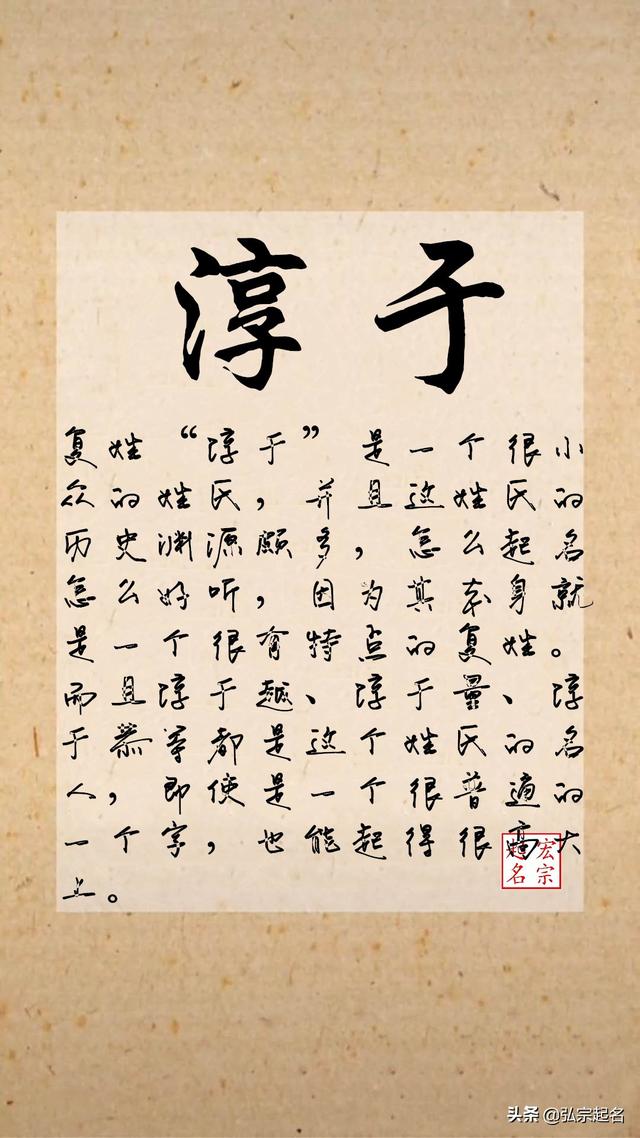 淳于
复姓“淳于”是一个很小
众的姓氏，并且这姓氏的
历史渊源颇多，怎么起名
怎么好听，因为其本身就
是一个很有特点的复姓。
而且淳于越、淳于量、淳
于棼等都是这个姓氏的名
人，即使是一个很普通的
一个字，也能起得很高大
上。
宏宗
起名
头条 @弘宗起名